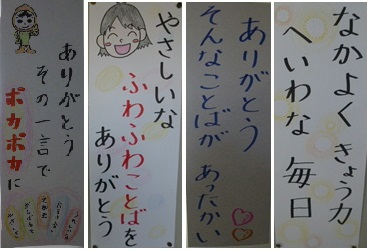 ありがとう
その一言で
ポカポカに
やさしいな
ふわふわことばを
ありがとう
ありがとう
そんなことばが
あったかい
なかよく きょう力
へいわな 毎日